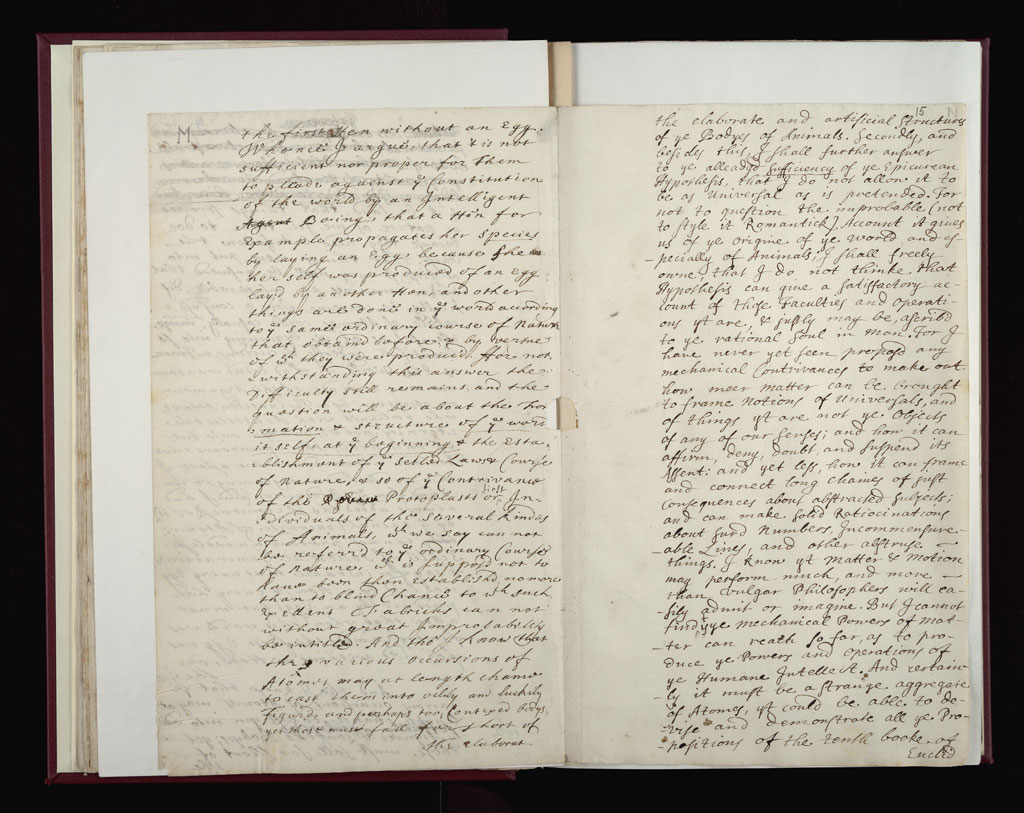 M
the first Hen without an Egg.
Whence I argue, that it is not
sufficient nor proper for them
to pleade against ye Constitution
of the world by an Intelligent
Agent Being, that a Hen for
Example propagates her Species
by laying an Egg, because She
her self was produced of an Egg
lay'd by another Hen, and other
things are done in ye world according
to ye same ordinary course of Nature
that obtaind before, & by vertue
of wch they were produced. For not
withstanding this answer the
Difficulty still remains, and the
question will be about the For
mation & structure of ye world
it self at ye beginning & the Esta-
blishment of ye setled Laws & Course
of Nature, & so of ye Contrivance
of the Protoplasts or first In-
dividuals of the several kinds
of Animals, wch we say can not
be referr'd to ye ordinary Course
of Nature, wch is suppos'd not to
have been then establish'd no more
than to blind Chance to wch such
Excellent Fabricks can not
without great Improbability
be intitled. And tho' I know that
the various occursions of
Atomes may at length chance
to cast them into oddly and luckily
figur'd, and perhaps too, Contexed bodys,
yet most must fall far short of
the elaborat
15
the elaborate and artificial Structures
of ye Bodyes of Animals. Secondly, and
besides this, I shall further answer
to ye alleadg'd sufficiency of ye Epicurean
Hypothesis, that I do not allow it to
be as Universal as is pretended. For
not to question the improbable (not
to style it Romantick) Account it gives
us of ye origine of ye world and es-
-pecially of Animals, I shall freely
owne, that I do not thinke that
Hypothesis can give a satisfactory ac-
count of those Faculties and operati-
ons yt are, & justly may be, ascrib'd
to ye rational Soul in Man. For I
have never yet seen propos'd any
mechanical Contrivances to make out
how meer Matter can be brought
to frame Notions of Universals, and
of things yt are not ye Objects
of any of our Senses; and how it can
affirm, deny, doubt, and suspend its
Assent: and yet less, how it can frame
and connect long chaines of just
Consequences about abstracted subjects;
and can make solid Ratiocinations
about surd Numbers, Incommensure-
-able Lines, and other abstruse
things. I know yt Matter & Motion
may perform much, and more
than vulgar Philosophers will ea-
-sily admit or imagine. But I cannot
find yt ye mechanical Powers of Mat-
-ter can reach so far, as to pro-
duce ye Powers and operations of
ye Humane Intellect. And certain-
-ly it must be a strange aggregate
of Atomes, yt could be able to de-
-vise and demonstrate all ye Pro-
-positions of the tenth booke of
Euclid